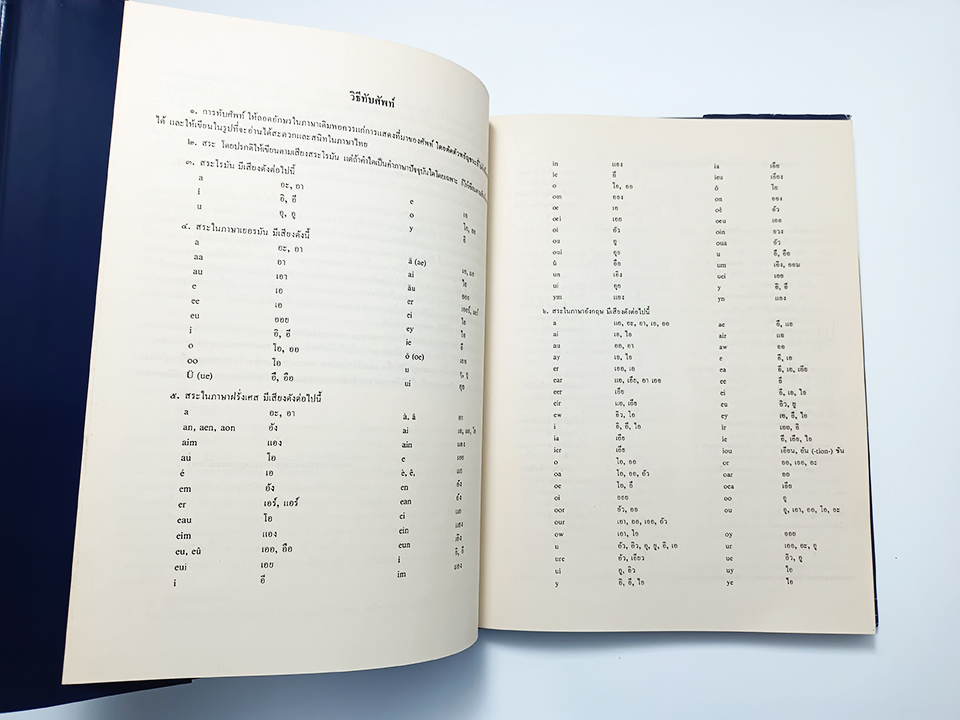 วิธีทับศัพท์
๑. การทับศัพท์ ให้ถอดอักษรในภาษาเดิมพอควรแก่การแสดงที่มาของศัพท์
ได้ และให้เขียนในรูปที่จะอ่านได้สะดวกและสนิทในภาษาไทย
๒. สระ โดยปรกติให้เขียนตามเสียงสระโรมัน แต่ถ้าคำใดเป็นคำภาษาปัจจุบันใดโดยเฉพาะ
๓. สระโรมัน มีเสียงดังต่อไปนี้
a อะ, อา e เอ
i อิ, อี o โอ, ออ
u อุ, อู y อิ
๔. สระในภาษาเยอรมัน มีเสียงดังนี้
a อะ, อา ä (ae) เอ, แอ
aa อา ai ไอ
au เอา äu ออย
e เอ er เออร์, แอร์
ee เอ ei ไอ
eu ออย ey ไอ
i อิ, อี ie อี
o โอ, ออ ö (oe) เออ
oo โอ u อุ, อู
Ü (ue) อึ, อือ ui อุย
๕. สระในภาษาฝรั่งเศส มีเสียงดังต่อไปนี้
a อะ, อา à, â อา
an, aen, aon อัง ai เอ, แอ, ไอ
aim แอง ain แอง
au โอ e เออ
é เอ è, ê แอ
em อัง en อัง
er เอร์, แอร์ ean อัง
eau โอ ei แอ
eim แอง ein แอง
eu, eû เออ, อือ eun เอิง
eui เอย i อิ, อี
i อี im แอง
in แอง ia เอีย
ie อี ieu เอียง
o โอ, ออ ô โอ
om ออง on ออง
oe เอ oê อัว
oei เอย oeu เออ
oi อัว oin อวง
ou อู oua อัว
oui อุย u อึ, อือ
û อือ um เอิง, ออม
un เอิง uei เอย
ui อุย y อิ, อี
ym แอง yn แอง
๖. สระในภาษาอังกฤษ มีเสียงดังต่อไปนี้
a แอ, อะ, อา, เอ, ออ ae อี, แอ
ai เอ, ไอ air แอ
au ออ, อา aw ออ
ay เอ, ไอ e อี, เอ
er เออ, เอ ea อี, เอ, เอีย
ear แอ, เอีย, อา เออ ee อี
eer เอีย ei อี, เอ, ไอ
eir แอ, เอีย eu อิว, อู
ew อิว, โอ ey เอ, อี, ไอ
i อิ, อี, ไอ ir เออ, อิ
ia เอีย ie อี, เอีย, ไอ
ier เอีย iou เอียน, อัน (-tion-) ชัน
o โอ, ออ or ออ, เออ, อะ
oa โอ, ออ, อัว oar ออ
oe โอ, อี oea เอีย
oi ออย oo อู
oor อัว, ออ ou อู, เอา, ออ, โอ, อะ
our เอา, ออ, เออ, อัว
ow เอา, โอ oy ออย
u อัว, อิว, อุ, อู, อิ, เอ ur เออ, อะ, อู
ure อัว, เอียว ue อิว, อู
ui อู, อิว uy ไอ
y อิ, อี, ไอ ye ไอ